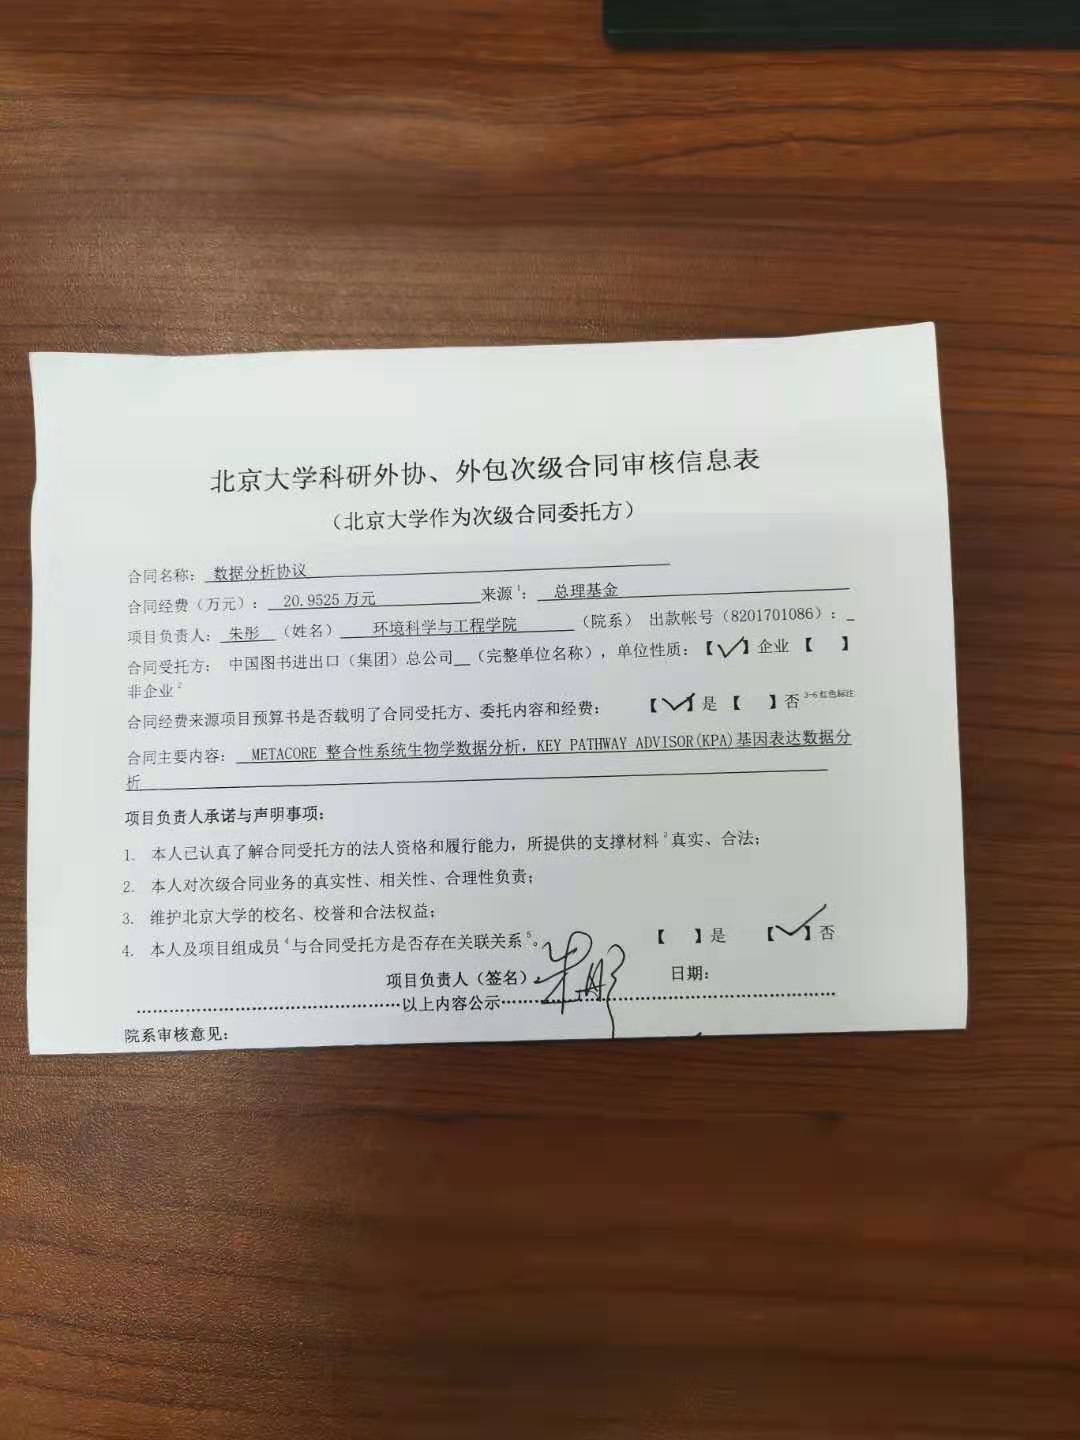 北京大学科研外协、外包次级合同审核信息表
（北京大学作为次级合同委托方）
合同名称： 数据分析协议
合同经费（万元）： 20.9525 万元 来源¹： 总理基金
项目负责人： 朱彤 （姓名） 环境科学与工程学院 （院系） 出款帐号（8201701086）：
合同受托方： 中国图书进出口（集团）总公司 （完整单位名称），单位性质：【✓】企业 【 】
非企业²
合同经费来源项目预算书是否载明了合同受托方、委托内容和经费： 【✓】是 【 】否 3-6 红色标注
合同主要内容： METACORE 整合性系统生物学数据分析，KEY PATHWAY ADVISOR(KPA)基因表达数据分
析
项目负责人承诺与声明事项：
1. 本人已认真了解合同受托方的法人资格和履行能力，所提供的支撑材料³真实、合法；
2. 本人对次级合同业务的真实性、相关性、合理性负责；
3. 维护北京大学的校名、校誉和合法权益；
4. 本人及项目组成员⁴与合同受托方是否存在关联关系⁵。 【 】是 【✓】否
项目负责人（签名）： 朱彤 日期：
以上内容公示
院系审核意见：